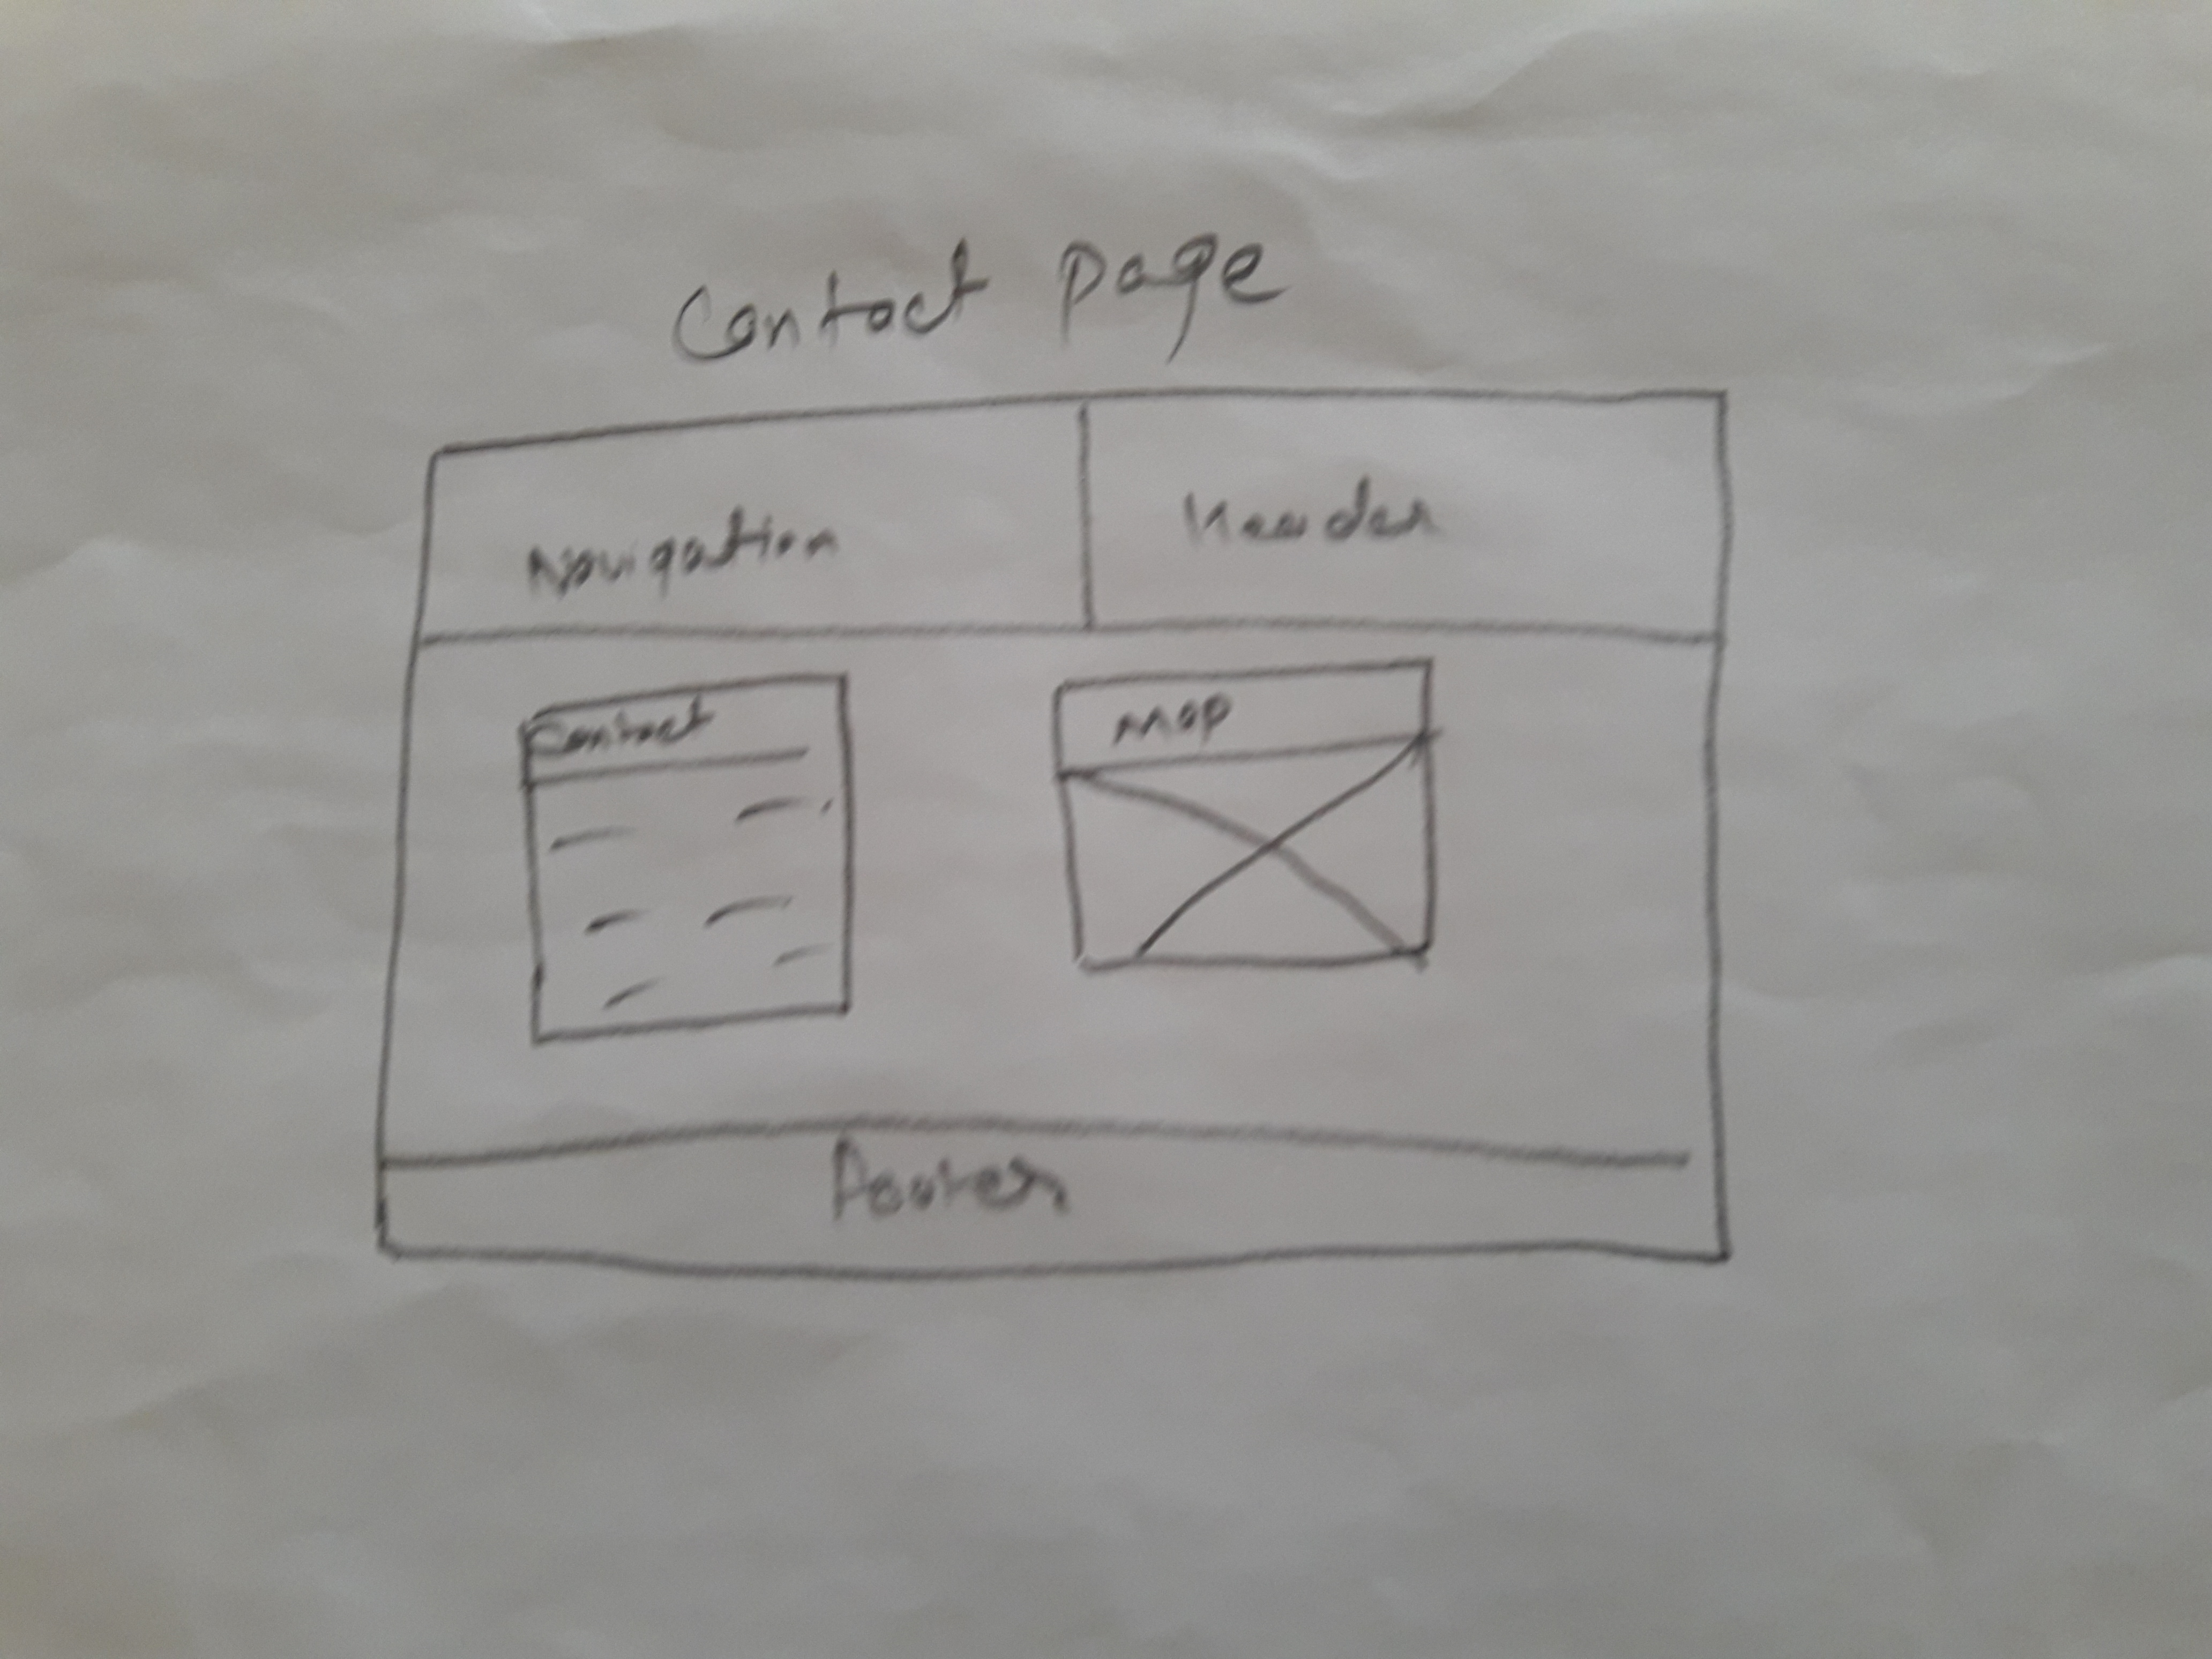 Contact page
Navigation
Header
Contact
Map
Footer